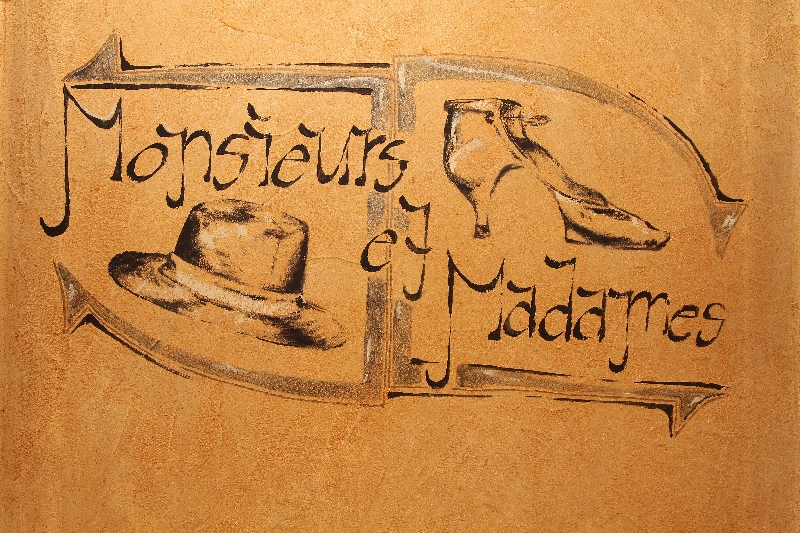 Monsieurs
et
Madames